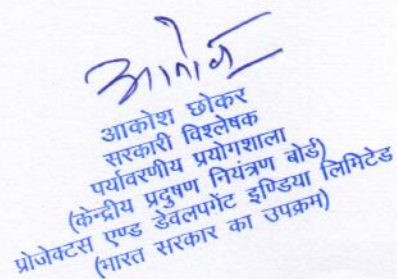 आकोश
आकोश छोकर
सरकारी विश्लेषक
पर्यावरणीय प्रयोगशाला
(केन्द्रीय प्रदुषण नियंत्रण बोर्ड)
प्रोजेक्टस एण्ड डेवलपमेंट इण्डिया लिमिटेड
(भारत सरकार का उपक्रम)